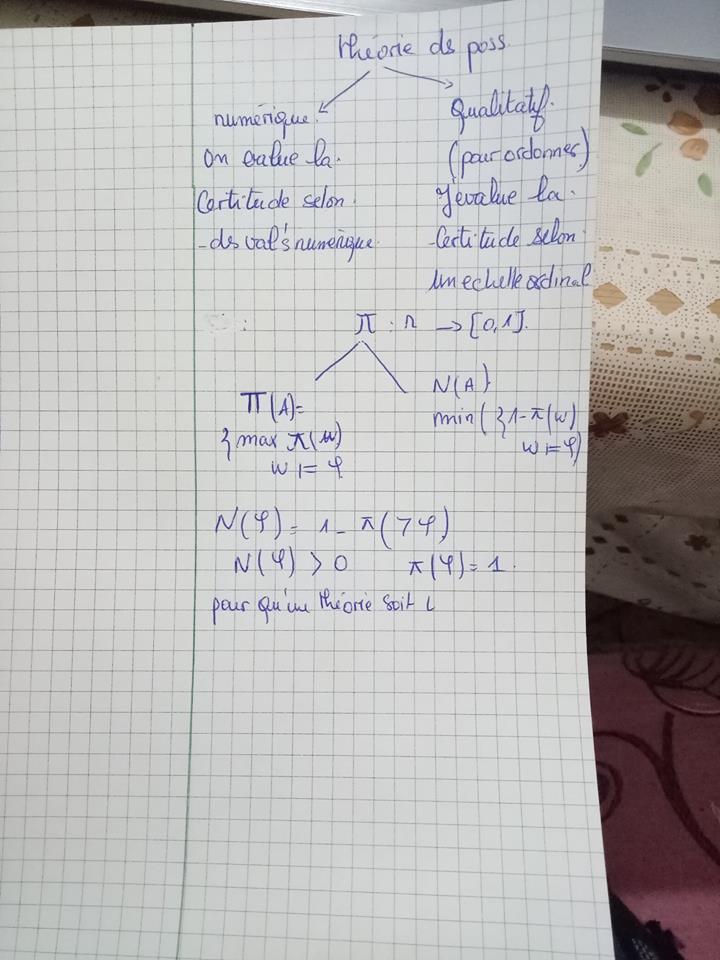 théorie ds poss.
numérique.
On evalue la.
Certitude selon.
- ds val's numérique.
Qualitatif.
(pour ordonnes)
J'evalue la.
Certitude selon
Un echelle ordinal
π : Ω → [0,1].
Π(A)=
{ max π(w)
w ⊨ φ
N(A)
min({1-π(w)
w ⊨ φ)
N(φ) = 1 - π(¬φ)
N(φ) > 0 π(φ) = 1.
pour qu'un théorie soit L